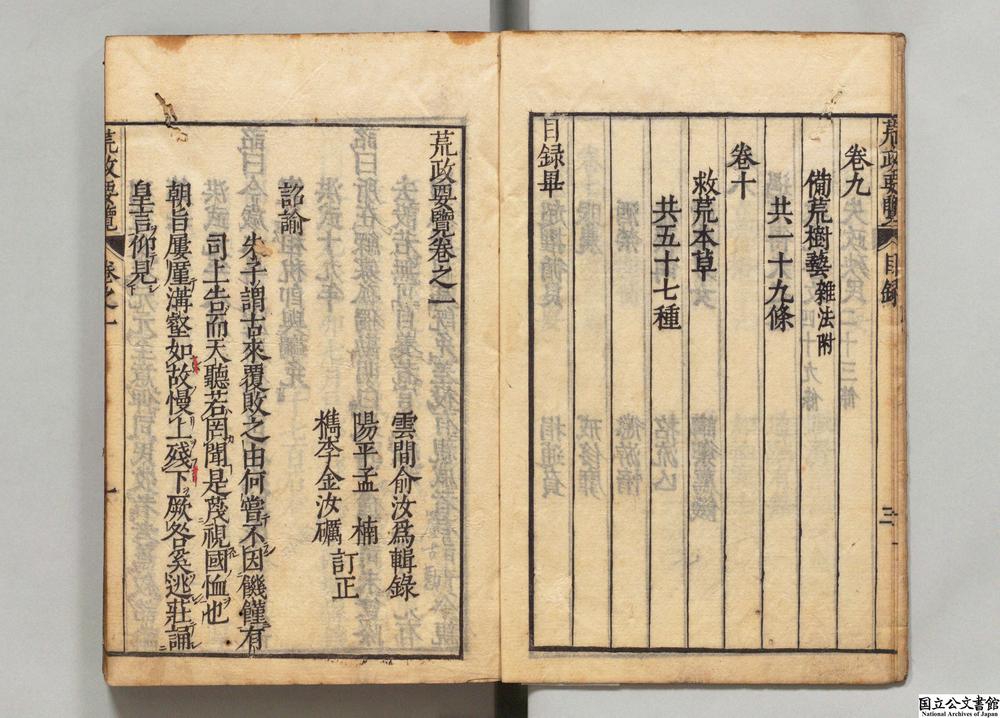 荒政要覽 目録 三
卷九
備荒樹藝 雜法附
共一十九條
卷十
救荒本草
共五十七種
目録畢
荒政要覽卷之一
雲間俞汝爲輯録
陽平孟楠
檇李金汝礪 訂正
詔諭
朱子謂古來覆敗之由何嘗不因饑饉有
司上告而天聽若罔聞是蔑視國恤也
朝旨屢厪溝壑如故慢上殘下厥咎奚逃莊誦
皇言仰見
荒政要覽 卷之一 一
国立公文書館
National Archives of Japan